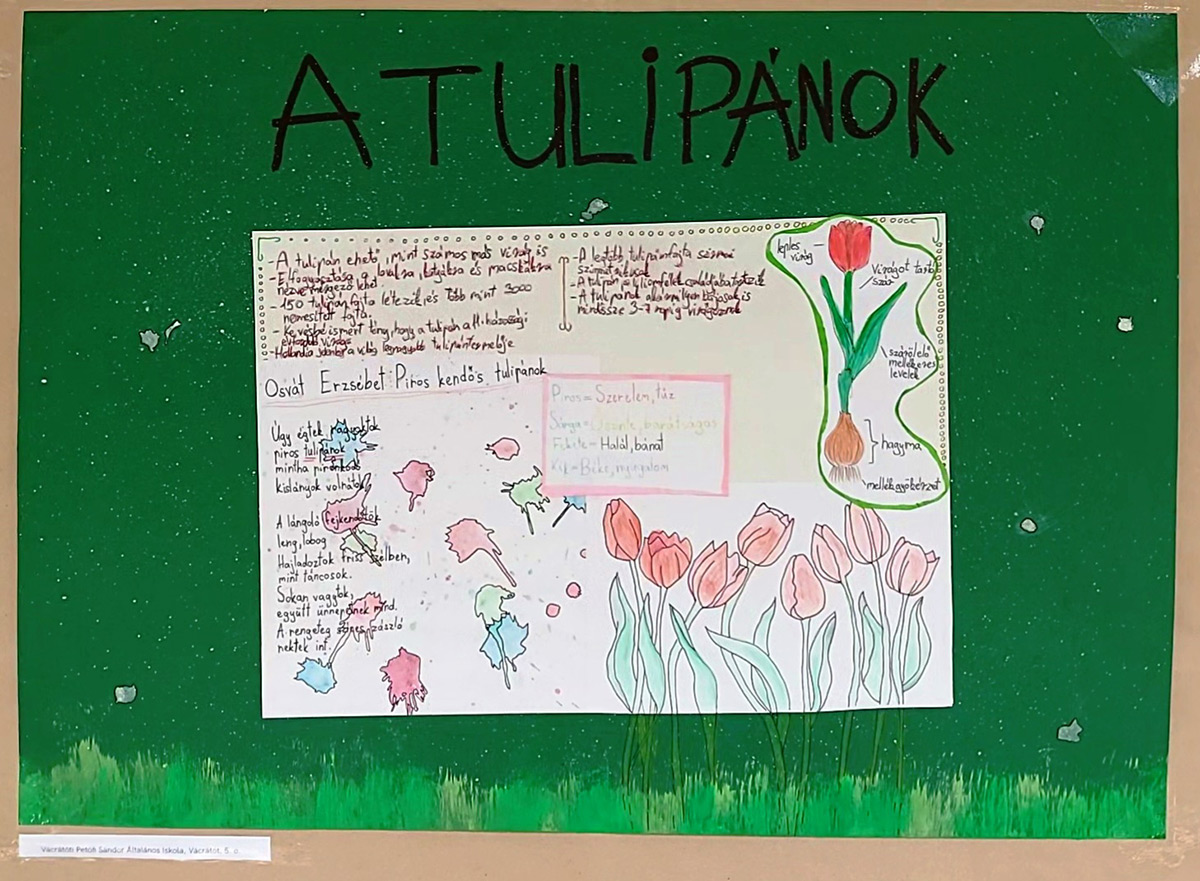 A TULIPÁNOK
- A tulipán ehető, mint számos más virág is
- Elfogyasztása a lovakra, kutyákra és macskákra
nézve mérgező lehet
- 150 tulipán fajta létezik, és több mint 3000
nemesített fajta.
- Kevésbé ismert tény, hogy a tulipán a 11. házassági
évforduló virága
- Hollandia a világ legnagyobb tulipántermelője
- A legtöbb tulipánfajta
- A tulipán a liliomfélék családjába tartozik
- A tulipánok
mindössze 3-7 napig virágoznak
leples
virág
Virágot tartó
szár
szárölelő
mellékeres
levelek
hagyma
mellékgyökérzet
Osvát Erzsébet: Piros kendős tulipánok
Úgy égtek, ragyogtok
piros tulipánok
mintha pironkodó
kislányok volnátok.
A lángoló fejkendőtök
leng, lobog
Hajladoztok friss szélben,
mint táncosok.
Sokan vagytok,
együtt ünnepeltek mind.
A rengeteg színes zászló
nektek int.
Piros = Szerelem, tűz
Sárga = barátságos
Fekete = Halál, bánat
Kék = Béke, nyugalom
Vácrátóti Petőfi Sándor Általános Iskola, Vácrátót, 5. o.